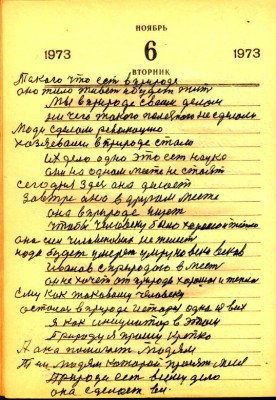 НОЯБРЬ
1973 6 1973
ВТОРНИК
Такого что ест в природе
оно жило живет и будет жит
Мы в природе своим делом
ничего такого полезного не сделали
Люди сделали революцию
хозяевами в природе стали
их дело одно это ест наука
она на одном месте не стоит
сегодня здес она делает
завтра она в другом месте
она в природе ищет
чтобы человеку было хорошо и тепло
она сил человеческих не жалеет
надо будет умереть умру но веки веков
Иванов с природою в мест
он не хочет от природы хорошая и тепла
ему как такому человеку
остался в природе истории один из всех
Я как инициатор в этом
Природу я прошу крепко
А она помогает людям
Тем людям которой просят меня
Природа ест всему дело
она сделает все.